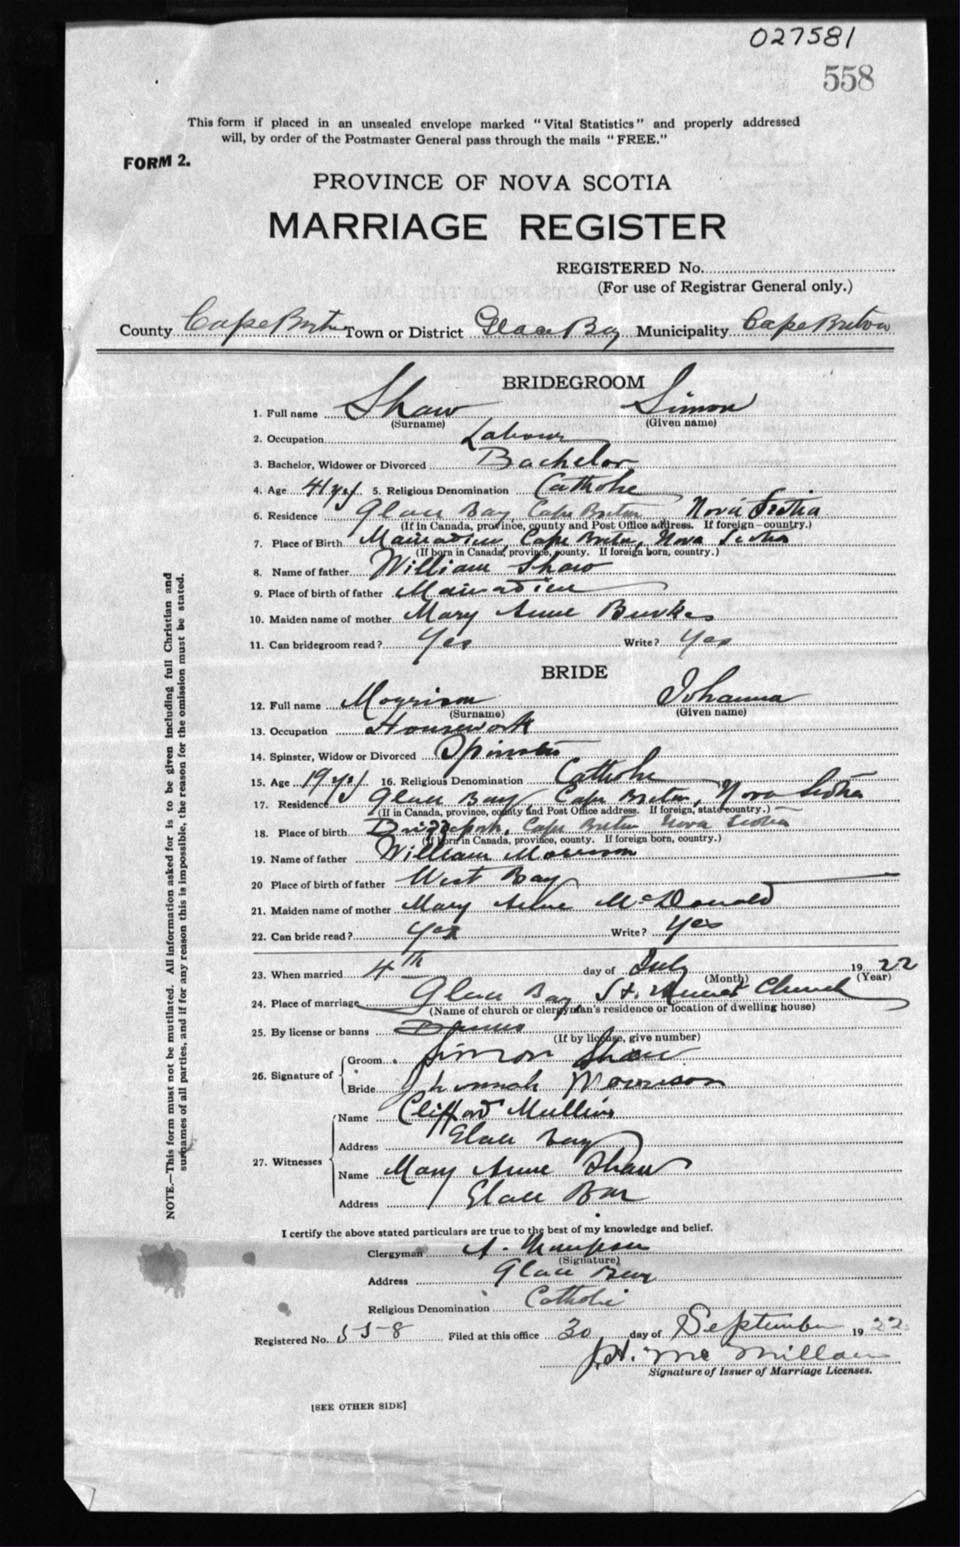 027581
558
This form if placed in an unsealed envelope marked "Vital Statistics" and properly addressed
will, by order of the Postmaster General pass through the mails "FREE."
FORM 2.
PROVINCE OF NOVA SCOTIA
MARRIAGE REGISTER
REGISTERED No.
(For use of Registrar General only.)
County Cape Breton Town or District Glace Bay Municipality Cape Breton
BRIDEGROOM
1. Full name Shaw Simon
(Surname) (Given name)
2. Occupation Labour
3. Bachelor, Widower or Divorced Bachelor
4. Age 41 yrs 5. Religious Denomination Catholic
6. Residence Glace Bay, Cape Breton Nova Scotia
(If in Canada, province, county and Post Office address. If foreign—country.)
7. Place of Birth Mainadieu, Cape Breton, Nova Scotia
(If born in Canada, province, county. If foreign born, country.)
8. Name of father William Shaw
9. Place of birth of father Mainadieu
10. Maiden name of mother Mary Anne Burke
11. Can bridegroom read? Yes Write? Yes
BRIDE
12. Full name Morrison Johanna
(Surname) (Given name)
13. Occupation Housework
14. Spinster, Widow or Divorced Spinster
15. Age 19 yrs 16. Religious Denomination Catholic
17. Residence Glace Bay, Cape Breton, Nova Scotia
(If in Canada, province, county and Post Office address. If foreign, state country.)
18. Place of birth Cape Breton Nova Scotia
(If born in Canada, province, county. If foreign born, country.)
19. Name of father William Morrison
20 Place of birth of father West Bay
21. Maiden name of mother Mary Anne McDonald
22. Can bride read? Yes Write? Yes
23. When married 4th day of July 1922
(Month) (Year)
24. Place of marriage Glace Bay St. Church
(Name of church or clergyman's residence or location of dwelling house)
25. By license or banns Banns
(If by license, give number)
26. Signature of
Groom Simon Shaw
Bride Johannah Morrison
27. Witnesses
Name Clifford Mullins
Address Glace Bay
Name Mary Anne Shaw
Address Glace Bay
I certify the above stated particulars are true to the best of my knowledge and belief.
Clergyman A.
(Signature)
Address Glace Bay
Religious Denomination Catholic
Registered No. 558 Filed at this office 30 day of September 1922
J.H. McMillan
Signature of Issuer of Marriage Licenses.
[SEE OTHER SIDE]
NOTE.—This form must not be mutilated. All information asked for is to be given including full Christian and
surnames of all parties, and if for any reason this is impossible, the reason for the omission must be stated.